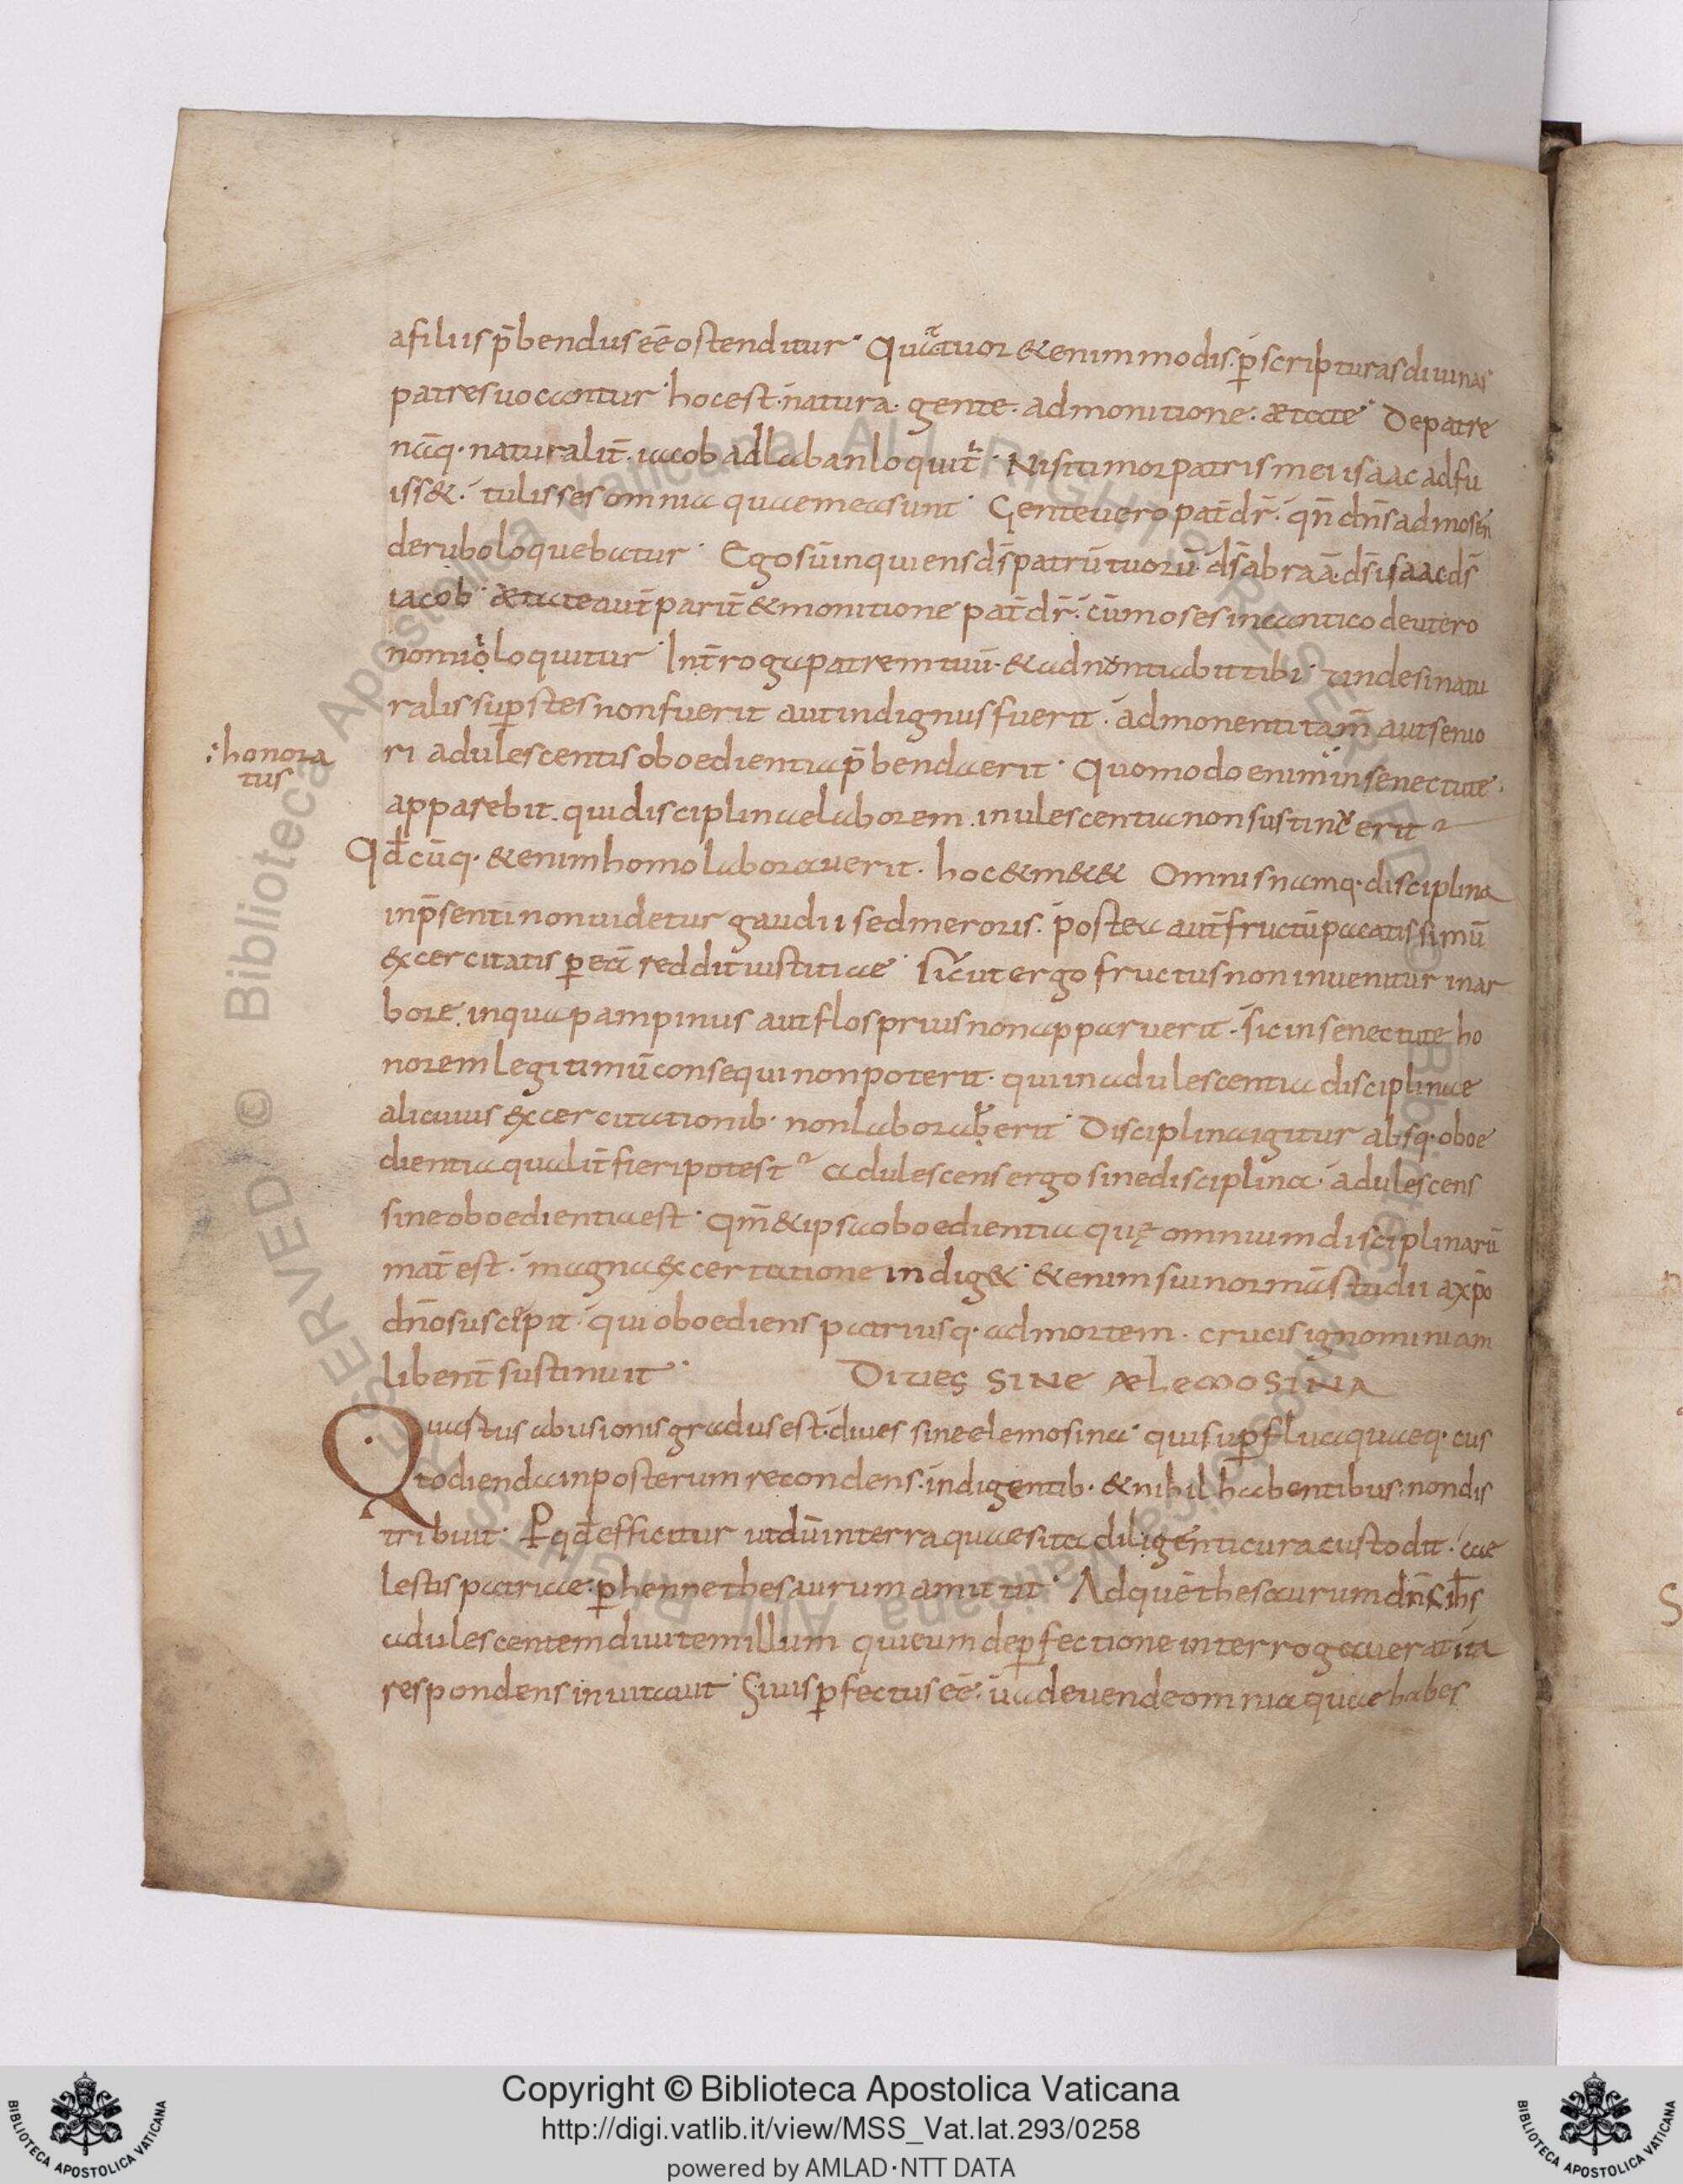 afiliis p̄bendus eē ostenditur · Quattuor &enim modis · ꝑ scripturas diuinas
patres uocantur · hoc est · natura · gente · admonitione · ætate · De patre
nāq· naturalit̄ · iacob ad laban loquit̄ · Nisi timor patris mei isaac adfu
iss& · tulisses omnia quae mea sunt · Gente uero pat̄ dr̄ · qn̄ dn̄s ad mosen
de rubo loquebatur · Ego sū inquiens ds̄ patrū tuorū · ds̄ abraā · ds̄ isaac ds̄
iacob · ætate aut̄ parit̄ & monitione pat̄ dr̄ · cū moses in cantico deutero
nomio loquitur · Int̄roga patrem tuū · & adnontiabit tibi · unde si natu
ralis sup̱stes non fuerit aut indignus fuerit · admonenti tam̄ aut senio
:honora
tus
ri adulescentis oboedientia p̄benda erit · Quomodo enim ⸫ in senectute ·
apparebit · qui disciplinae laborem · inulescentia non sustinuerit
Qd̄cūq· &enim homo laborauerit · hoc & m&& Omnis namq· disciplina
in p̄senti non uidetur gaudii sed meroris · postea aut̄ fructū pacatissimū
excercitatis ꝑ eā reddit iustitiae · Sicut ergo fructus non inuenitur in ar
bore · in qua pampinus aut flos prius non apparuerit · sic in senectute ho
norem legitimū consequi non poterit · qui in adulescentia disciplinae
alicuius excercitationib· non laborauerit · Disciplina igitur absq· oboe
dientia qualit̄ fieri potest adulescens ergo sine disciplina · adulescens
sine oboedientia est · qm̄ & ipsa oboedientia quę omnium disciplinarū
mat̄ est · magna excertatione indig& · &enim sui normā studii a xp̄o
dn̄o suscepit · qui oboediens patri usq· ad mortem · crucis ignominiam
libent̄ sustinuit · DIVES SINE ÆLEMOSINA
Quartus abusionis gradus est · diues sine elemosina · qui suꝑflua quaeq· cus
todienda in posterum recondens · indigentib· & nihil habentibus · non dis
tribuit · Ꝑ qd̄ efficitur ut dū in terra quaesita diligenti cura custodit · cae
lestis patriae · ꝑhenne thesaurum amittit · Ad quē thesaurum dn̄s ih̄s
adulescentem diuitem illum qui eum de ꝑfectione interrogauerat ita
respondens inuitauit · Si uis ꝑfectus eē · uade uende omnia quae habes
Copyright © Biblioteca Apostolica Vaticana
http://digi.vatlib.it/view/MSS_Vat.lat.293/0258
powered by AMLAD·NTT DATA
BIBLIOTECA APOSTOLICA VATICANA
BIBLIOTECA APOSTOLICA VATICANA